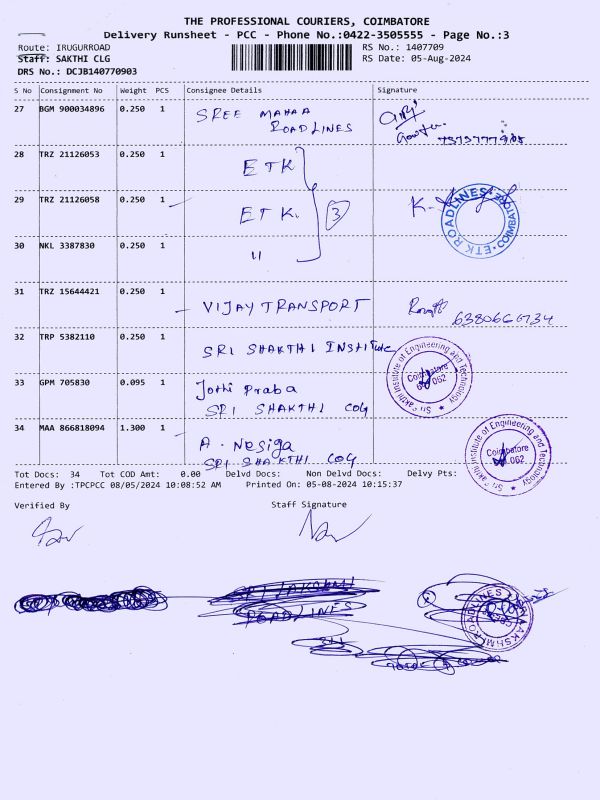 THE PROFESSIONAL COURIERS, COIMBATORE
Delivery Runsheet - PCC - Phone No.:0422-3505555 - Page No.:3
Route: IRUGURROAD RS No.: 1407709
Staff: SAKTHI CLG RS Date: 05-Aug-2024
DRS No.: DCJB140770903
S No Consignment No Weight PCS Consignee Details Signature
27 BGM 900034896 0.250 1 SREE MAHAA
ROADLINES
28 TRZ 21126053 0.250 1 ETK
29 TRZ 21126058 0.250 1 ETK. 3 K.
ETK ROADLINES COIMBATORE
30 NKL 3387830 0.250 1 "
31 TRZ 15644421 0.250 1 VIJAY TRANSPORT
6380666734
32 TRP 5382110 0.250 1 SRI SHAKTHI INSTITUTE
Sri Shakthi Institute of Engineering and Technology
Coimbatore
641 062
33 GPM 705830 0.095 1 Jothi Praba
SRI SHAKTHI COG
34 MAA 866818094 1.300 1 A. Nesiga
SRI SHAKTHI COG
Sri Shakthi Institute of Engineering and Technology
Coimbatore
641 062
Tot Docs: 34 Tot COD Amt: 0.00 Delvd Docs: Non Delvd Docs: Delvy Pts:
Entered By :TPCPCC 08/05/2024 10:08:52 AM Printed On: 05-08-2024 10:15:37
Verified By Staff Signature
ROADLINES